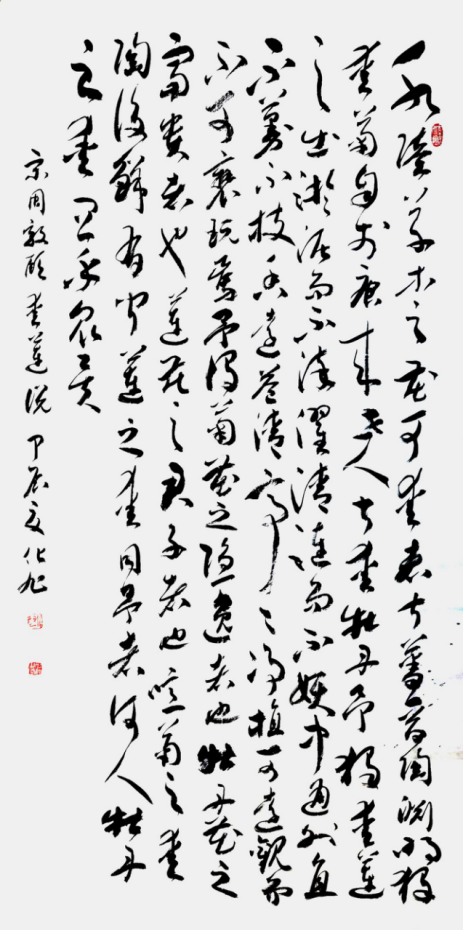 水陸草木之花可愛者甚蕃晉陶淵明獨
愛菊自李唐來世人甚愛牡丹予獨愛蓮
之出淤泥而不染濯清漣而不妖中通外直
不蔓不枝香遠益清亭亭淨植可遠觀而
不可褻玩焉予謂菊花之隱逸者也牡丹花之
富貴者也蓮花之君子者也噫菊之愛
陶後鮮有聞蓮之愛同予者何人牡丹
之愛宜乎眾矣
宋周敦頤愛蓮說 甲辰夏化旭